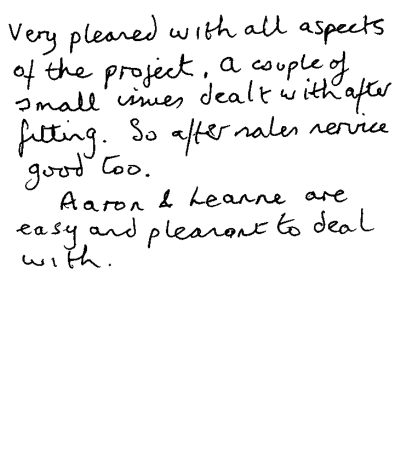 Very pleased with all aspects
of the project. A couple of
small issues dealt with after
fitting. So after sales service
good too.
Aaron & Leanne are
easy and pleasant to deal
with.